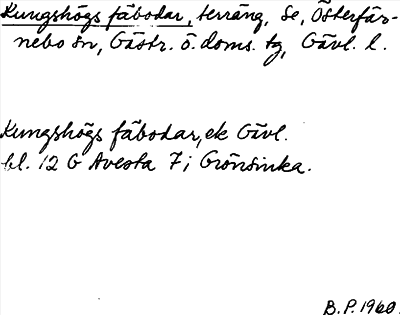 Kungshögs fäbodar, terräng, Se, Österfär-
nebo sn, Gästr. ö. doms. tg, Gävl. l.
Kungshögs fäbodar, ek Gävl.
bl. 12 G Avesta 7 i Grönsinka.
B.P. 1960.